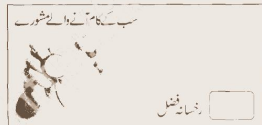 سب کے کام آنے والے مشورے
رخسانہ فضل